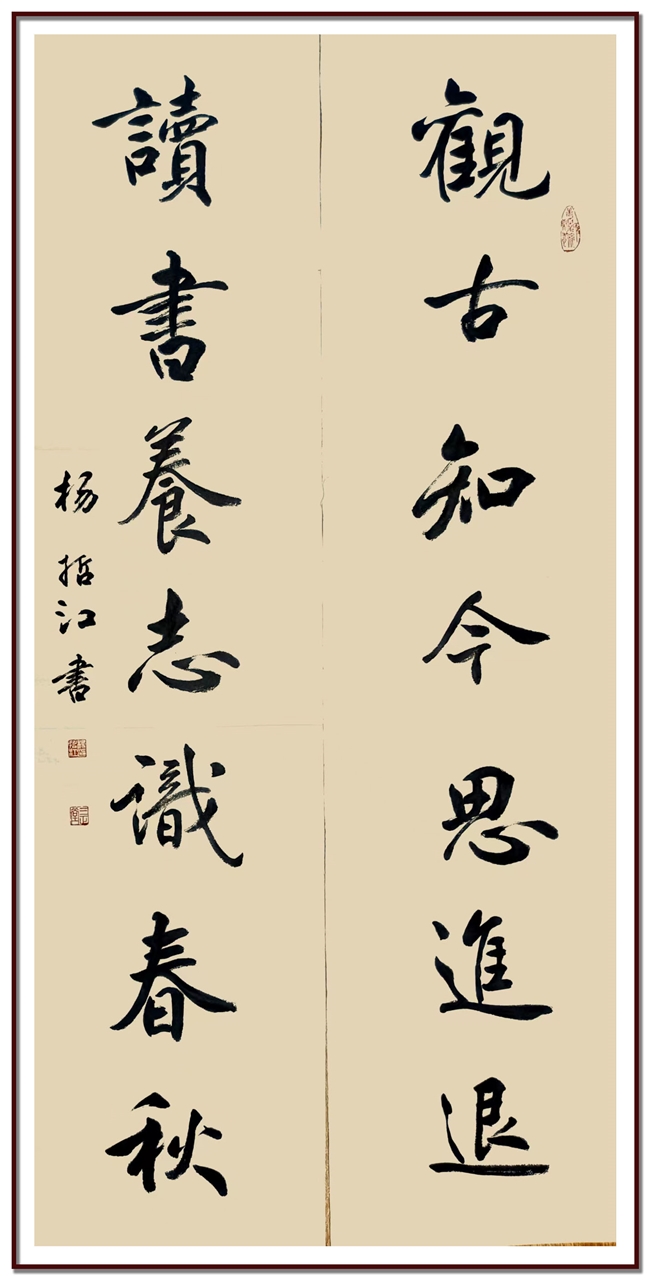 觀古知今思進退
讀書養志識春秋
杨哲江书